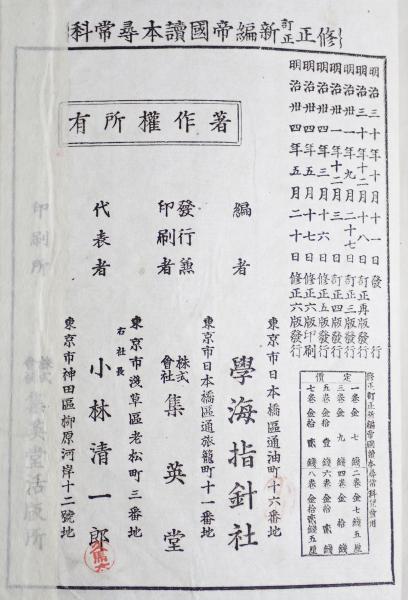 修正訂正新編帝國讀本尋常科
明治三十年十月十一日發行
明治三十年十二月十八日訂正再版發行
明治卅一年九月二十七日訂正三版發行
明治卅一年十二月三日訂正四版發行
明治卅四年三月十六日修正五版發行
明治卅四年五月十七日修正六版印刷
明治卅四年五月二十日修正六版發行
修正訂正新編帝國讀本尋常科兒童用
定價
一卷金七錢 二卷金七錢五厘
三卷金九錢 四卷金拾錢
五卷金拾壹錢 六卷金拾貳錢
七卷金拾貳錢 八卷金拾貳錢五厘
著作權所有
編者
東京市日本橋區通油町十六番地
學海指針社
發行兼印刷者
東京市日本橋區通旅籠町十一番地
株式會社 集英堂
代表者
東京市淺草區老松町三番地
右社長
小林清一郎
東京市神田區柳原河岸十二號地
印刷所
株式會社 集英堂活版所